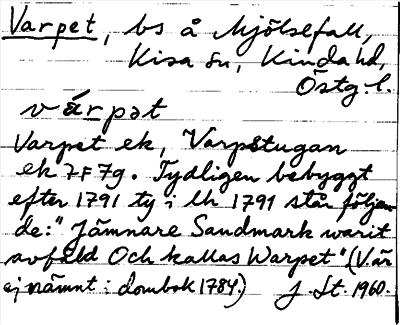 Varpet, bs å Mjölsefall,
Kisa sn, Kinda hd,
Östg. l.
várpət
Varpet ek, Varpstugan
ek 7F7g. Tydligen bebyggt
efter 1791 ty i lh 1791 står följan
de: "Jämnare Sandmark warit
avfäld Och kallas Warpet" (Vár
ej nämnt i dombok 1784.) J. St. 1960.